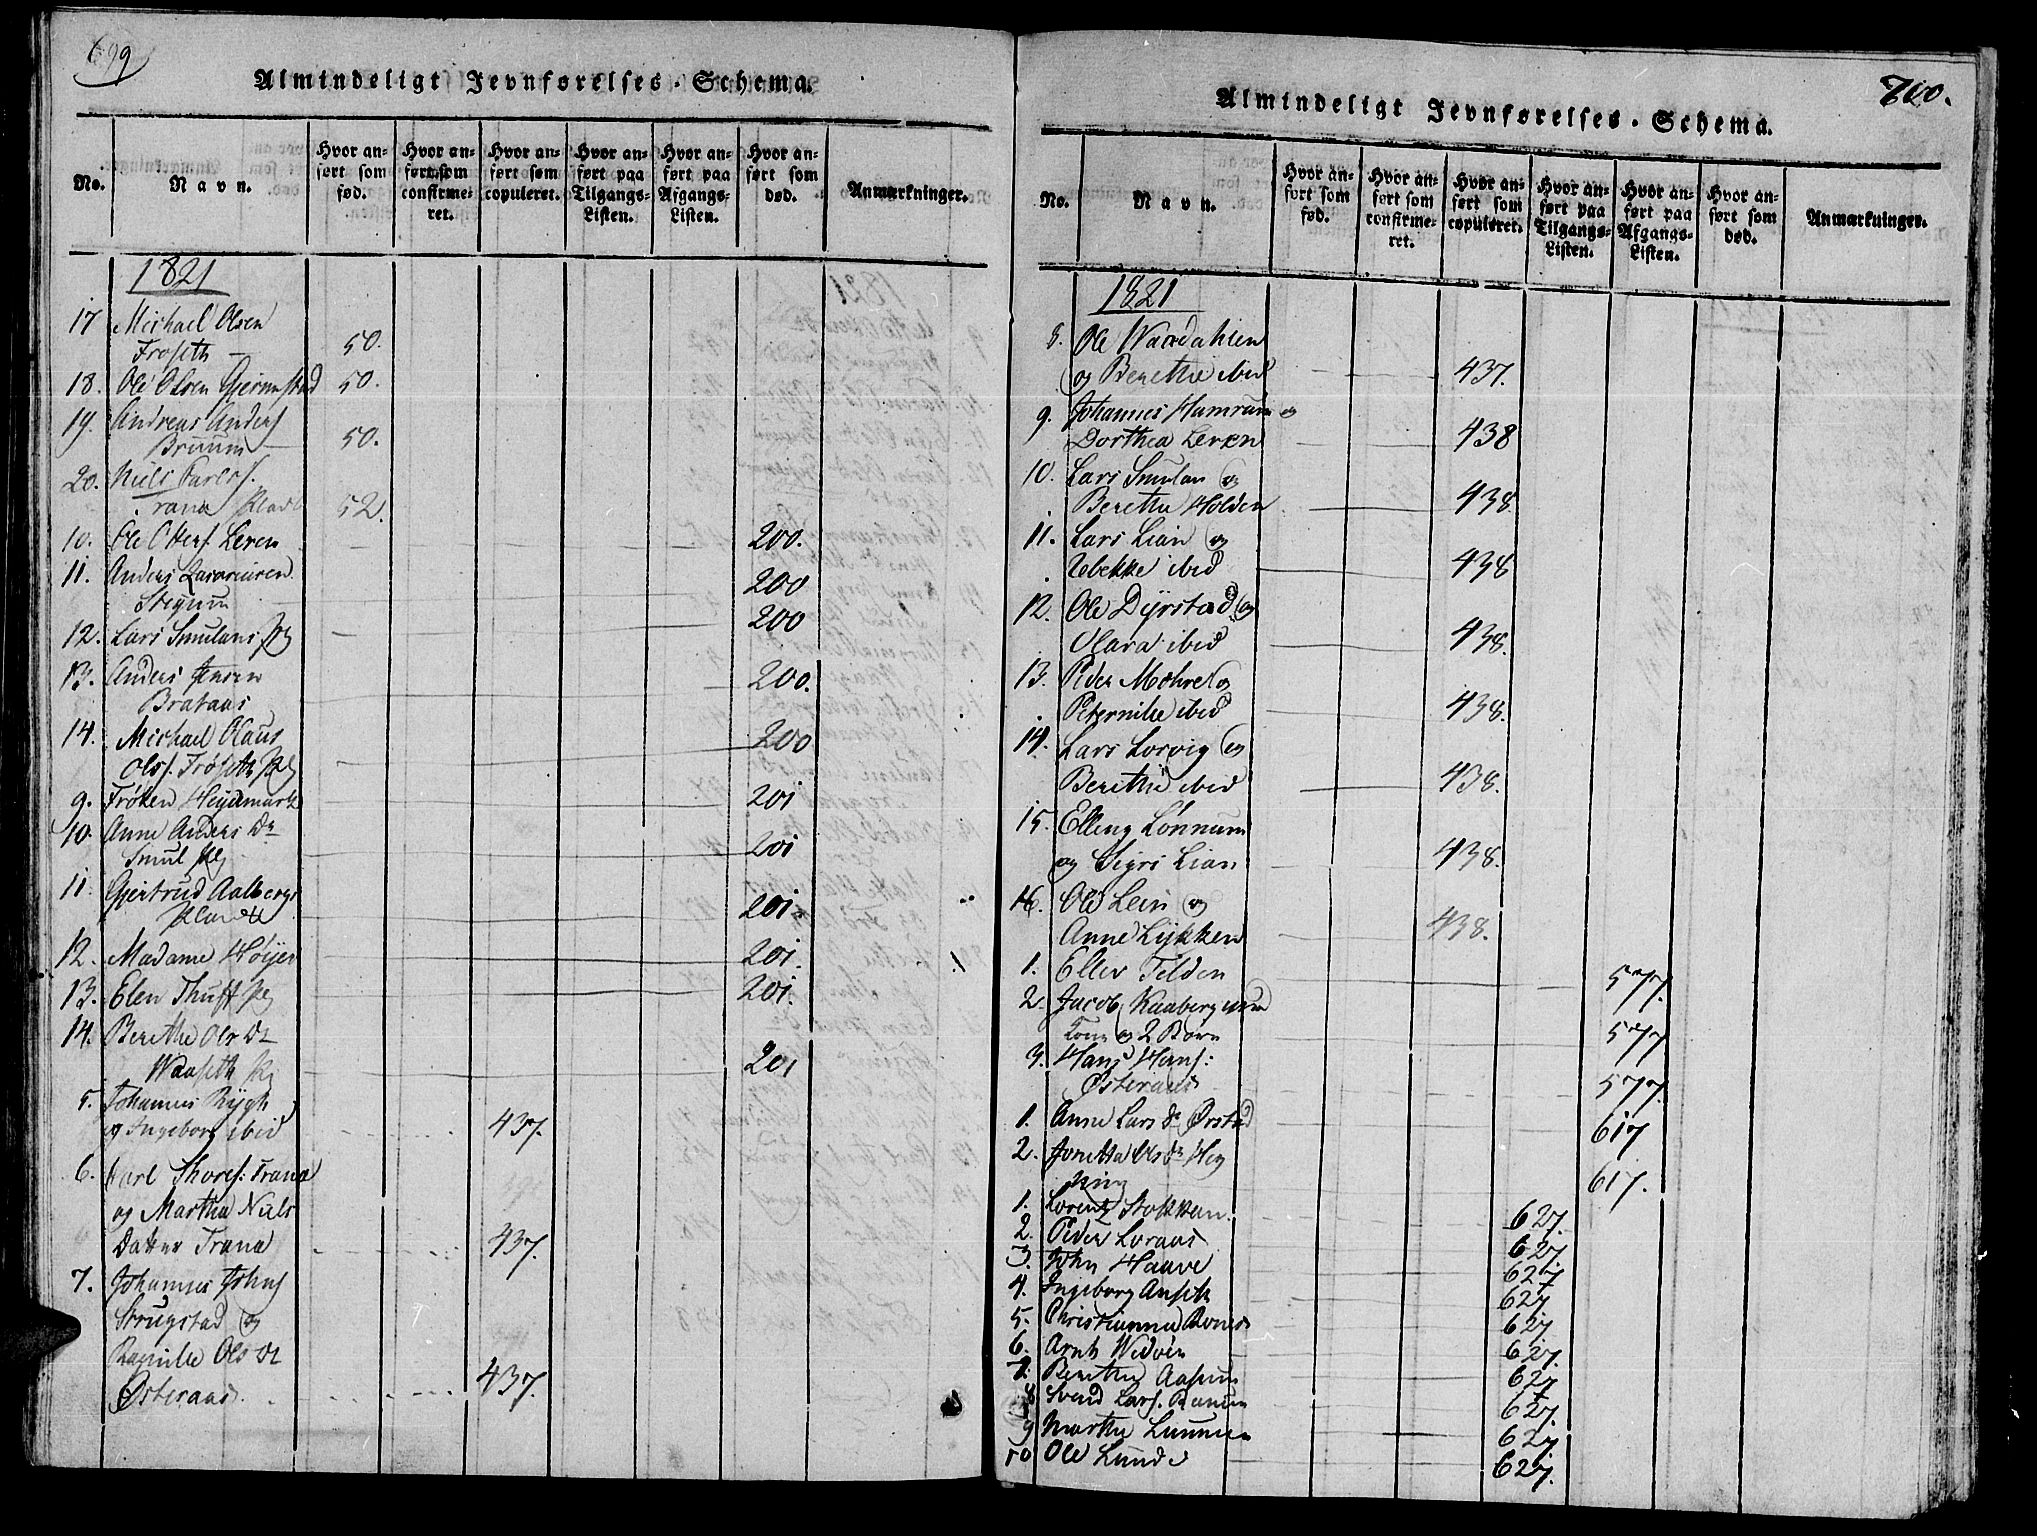 699
Almindeligt Jevnførelses-Schema.
No.
Navn.
Hvor anført som fød.
Hvor anført som confirmeret.
Hvor anført som copuleret.
Hvor anført paa Tilgangs-Listen.
Hvor anført paa Afgangs-Listen.
Hvor anført som død.
Anmærkninger.
1821
17 Michael Olsen
Froseth 50.
18. Ole Olsen Gjermstad 50.
19. Andreas Anders
Bruum 50.
20. Niels Carls.
52.
10. Ole Leren 200.
11. Anders
200
12. Lars Smulans 200
13. Anders Jensen
Brataas 200.
14. Michael Olaus
Ols. Fröseth 200
9. Fröken 201
10. Anne Anders Dr
Smul 201
11. Gjertrud Aalbergs
201.
12. Madame Höyer 201.
13. Elen Thuff 201.
14. Berethe Ols Dr
Waaseth 201
5. Johannes Rygh
og Ingeborg ibid 437.
6. Karl Thores. Trana
og Martha Niels
Datter Trana 437.
7. Johannes Johns
Strugstad og
Ols Dr
Østeraas. 437.
700.
Almindeligt Jevnførelses-Schema.
No.
Navn.
Hvor anført som fød.
Hvor anført som confirmeret.
Hvor anført som copuleret.
Hvor anført paa Tilgangs-Listen.
Hvor anført paa Afgangs-Listen.
Hvor anført som død.
Anmærkninger.
1821
8. Ole Wardahlen
og Berethe ibid 437.
9. Johannes Hamrum og
Dorthea Leren 438
10. Lars Smulan og
Beretha Holden 438
11. Lars Lian og
Rebekke ibid 438
12. Ole Dyrstad og
Olava ibid 438.
13. Peder Mohrel og
Peternille ibid 438.
14. Lars Lorvig og
Berethe ibid 438.
15. Elling Lønnum
og Sigri Lian 438.
16. Ole Lein og
Anne Lykken 438.
1. Ellev Telden 577.
2. Jacob Raaberg
Kone og 2 Børn 577
3. Hans Hans:
Østeraas 577.
1. Anne Lars Dr Ørstad 617
2. Jonetta Ols Dr
617.
1. Lorentz Stokkan. 627.
2. Peder Loraas 627.
3. John Haave 627
4. Ingeborg Anseth 627.
5. Christianna 627.
6. Arnt Wedöen 627.
7. Beretha Aasum 627
8 Svend Lars. Ranum 627.
9 Martha 627.
10 Ole Lunde 627.